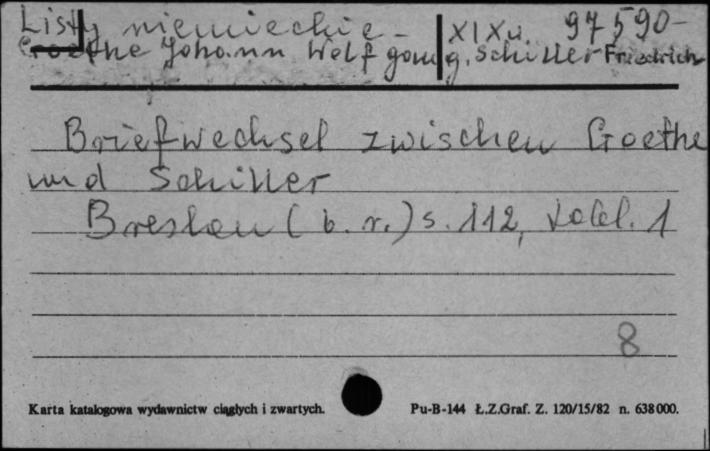 Listy niemieckie - XIX w. 97590-
Goethe Johann Wolfgang, Schiller Friedrich
Briefwechsel zwischen Goethe
und Schiller
Breslau (b. r.) s. 112, 1
8
Karta katalogowa wydawnictw ciągłych i zwartych. Pu-B-144 Ł.Z.Graf. Z. 120/15/82 n. 638000.